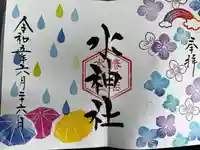 奉拝
水神社
令和五年六月二十六日